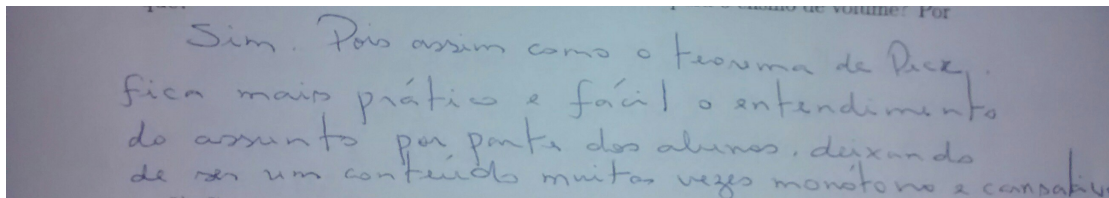 que? ensino de volume? Por
Sim. Pois assim como o teorema de Pick,
fica mais prático e fácil o entendimento
do assunto por parte dos alunos, deixando
de ser um conteúdo muitas vezes monótono e cansativo